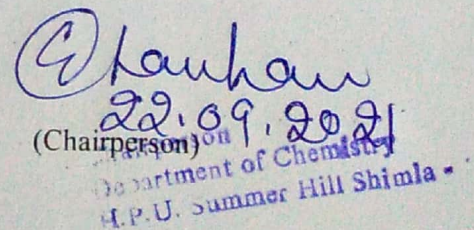 Chauhan
22.09.2021
(Chairperson)
Chairperson
Department of Chemistry
H.P.U. Summer Hill Shimla -